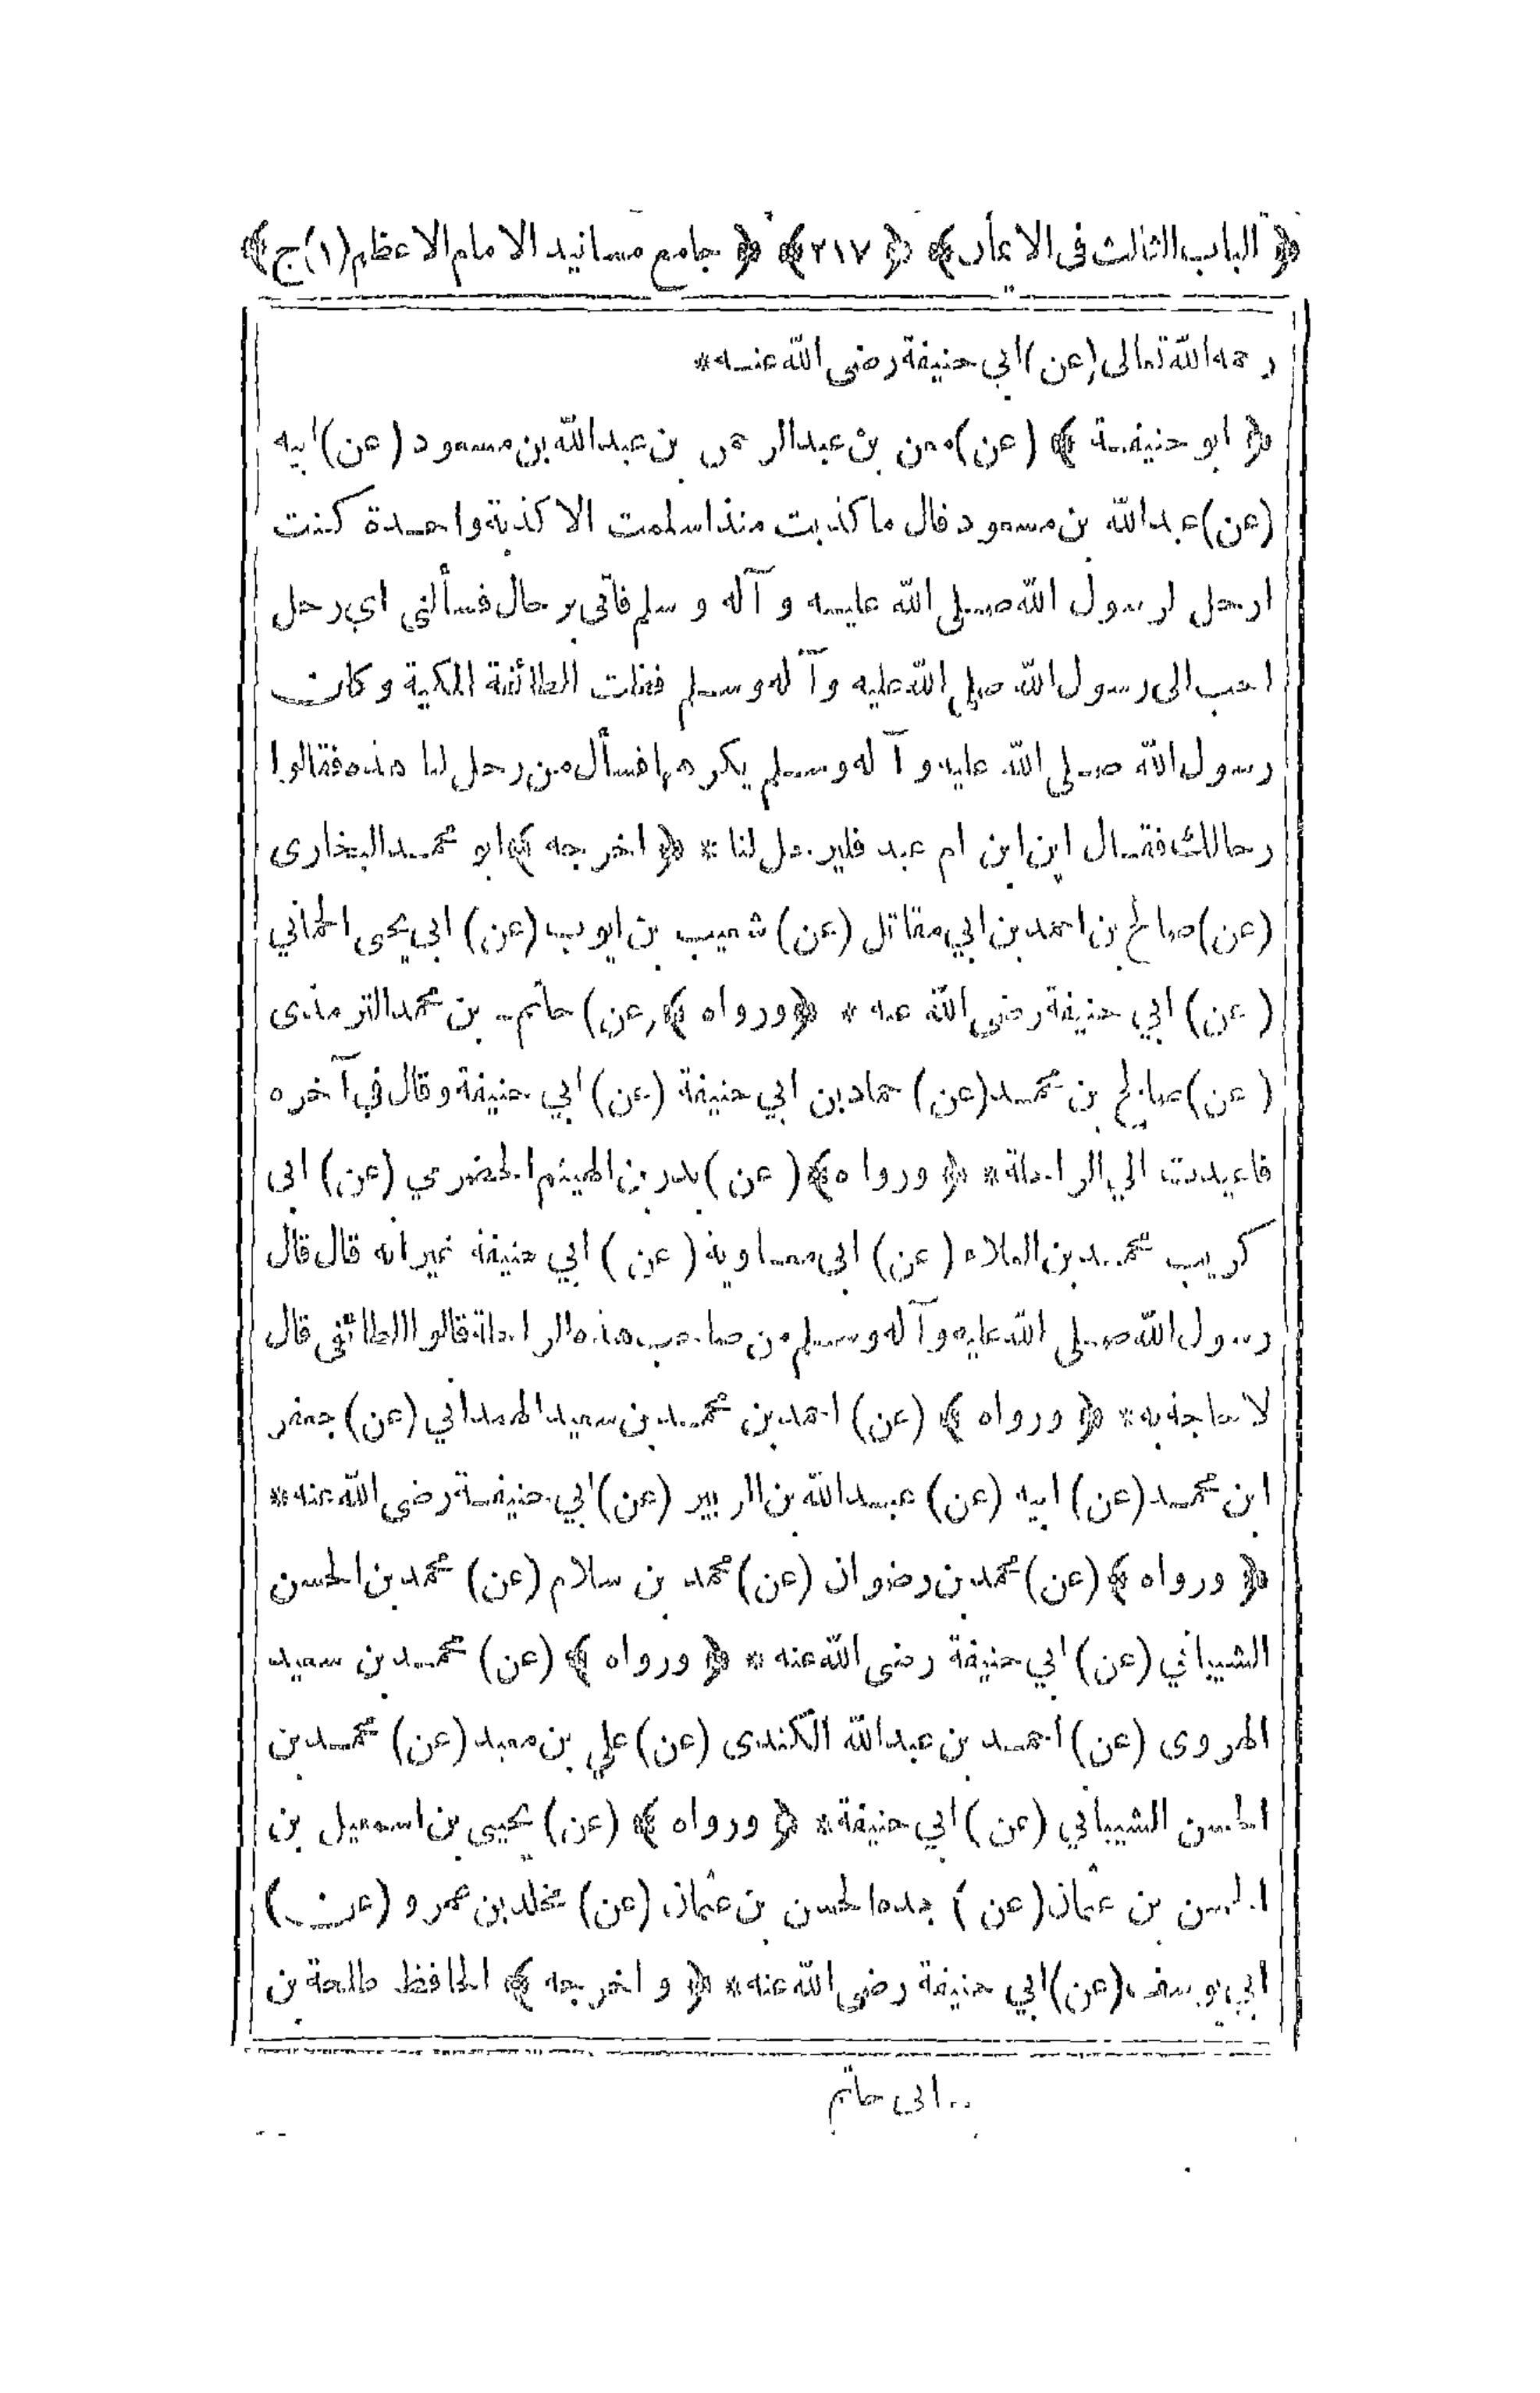 ﴿ الباب الثالث فى الايمان ﴾ ﴿ ٢١٧ ﴾ ﴿ جامع مسانيد الامام الاعظم (١) ج ﴾
رحمه الله تعالى (عن) ابي حنيفة رضى الله عنه *
﴿ ابو حنيفة ﴾ (عن) معن بن عبد الرحمن بن عبد الله بن مسعود (عن) ابيه
(عن) عبد الله بن مسعود قال ما كذبت منذ اسلمت الا كذبة واحدة كنت
ارحل لرسول الله صلى الله عليه وآله وسلم فاتى برحال فسألنى اي رحل
احب الى رسول الله صلى الله عليه وآله وسلم فقلت الطائفة المكية وكان
رسول الله صلى الله عليه وآله وسلم يكرهها فسأل من رحل لنا هذه فقالوا
رحالك فقال اين ابن ام عبد فليرحل لنا * ﴿ اخرجه ﴾ ابو محمد البخارى
(عن) صالح بن احمد بن ابي مقاتل (عن) شعيب بن ايوب (عن) ابي يحيى الحماني
(عن) ابي حنيفة رضى الله عنه * ﴿ ورواه ﴾ (عن) حاتم بن محمد الترمذى
(عن) صالح بن محمد (عن) حماد بن ابي حنيفة (عن) ابي حنيفة وقال في آخره
فاعيدت الي الراحلة * ﴿ ورواه ﴾ (عن) بدر بن الهيثم الحضري (عن) ابى
كريب محمد بن العلاء (عن) ابى معاوية (عن) ابي حنيفة غير انه قال قال
رسول الله صلى الله عليه وآله وسلم من صاحب هذه الراحلة قالوا الطائفى قال
لا حاجة به * ﴿ ورواه ﴾ (عن) احمد بن محمد بن سعيد الهمداني (عن) جعفر
ابن محمد (عن) ابيه (عن) عبد الله بن الزبير (عن) ابي حنيفة رضى الله عنه *
﴿ ورواه ﴾ (عن) محمد بن رضوان (عن) محمد بن سلام (عن) محمد بن الحسن
الشيباني (عن) ابي حنيفة رضى الله عنه * ﴿ ورواه ﴾ (عن) محمد بن سعيد
الهروى (عن) احمد بن عبد الله الكندى (عن) علي بن معبد (عن) محمد بن
الحسن الشيباني (عن) ابي حنيفة * ﴿ ورواه ﴾ (عن) يحيى بن اسمعيل بن
الحسن بن عثمان (عن) جده الحسن بن عثمان (عن) مخلد بن عمرو (عن)
ابي يوسف (عن) ابي حنيفة رضى الله عنه * ﴿ واخرجه ﴾ الحافظ طلحة بن
ابى حاتم